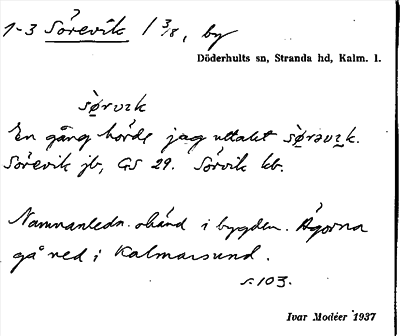 1-3 Sörevik 1 3/8, by
Döderhults sn, Stranda hd, Kalm. l.
sørvɪk
En gång hörde jag uttalet sørəvɪk.
Sörevik jb, GS 29. Sörvik kb.
Namnanledn. okänd i bygden. Ägorna
gå ned i Kalmarsund.
s. 103.
Ivar Modéer 1937